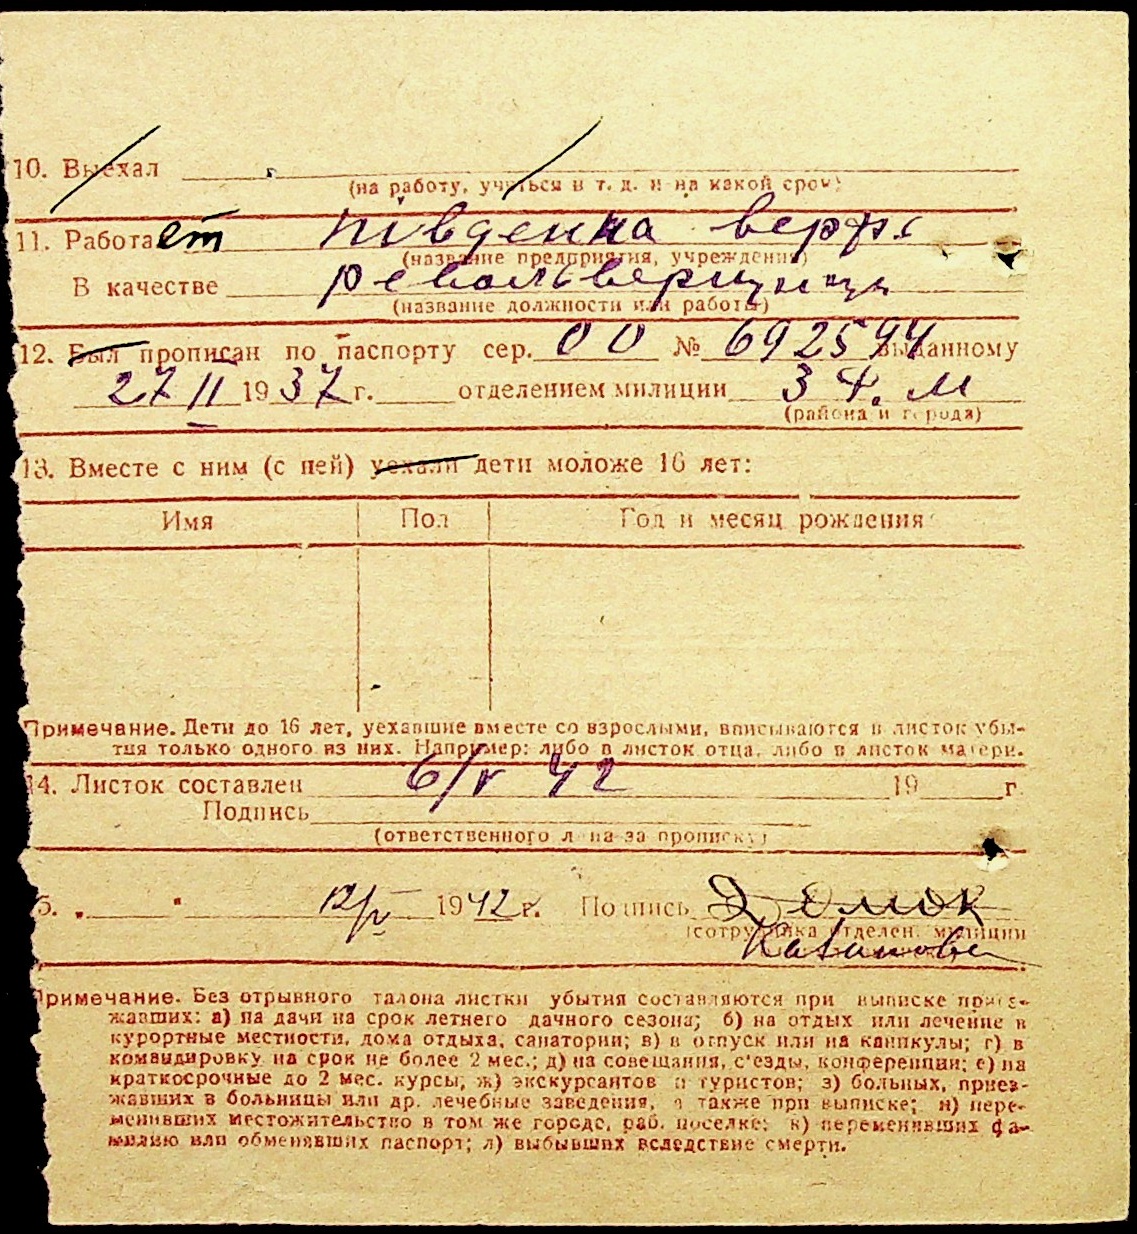 10. Выехал
(на работу, учиться и т. д. и на какой срок)
11. Работает Південна верфь
(название предприятия, учреждения)
В качестве револьверщица
(название должности или работы)
12. Был прописан по паспорту сер. 00 № 692594 выданному
27 II 1937 г. отделением милиции 3 Ч. М
(района и города)
13. Вместе с ним (с ней) уехали дети моложе 16 лет:
Имя Пол Год и месяц рождения
Примечание. Дети до 16 лет, уехавшие вместе со взрослыми, вписываются в листок убы-
тия только одного из них. Например: либо в листок отца, либо в листок матери.
14. Листок составлен 6/V 42 19 г.
Подпись
(ответственного лица за прописку)
5. „ " 12/V 1942 г. Подпись
(сотрудника отделен. милиции
Примечание. Без отрывного талона листки убытия составляются при выписке приез-
жавших: а) на дачи на срок летнего дачного сезона; б) на отдых или лечение в
курортные местности, дома отдыха, санатории; в) в отпуск или на каникулы; г) в
командировку на срок не более 2 мес.; д) на совещания, с'езды, конференции; е) на
краткосрочные до 2 мес. курсы; ж) экскурсантов и туристов; з) больных, приез-
жавших в больницы или др. лечебные заведения, а также при выписке; и) пере-
менивших местожительство в том же городе, раб. поселке; к) переменивших фа-
милию или обменявших паспорт; л) выбывших вследствие смерти.